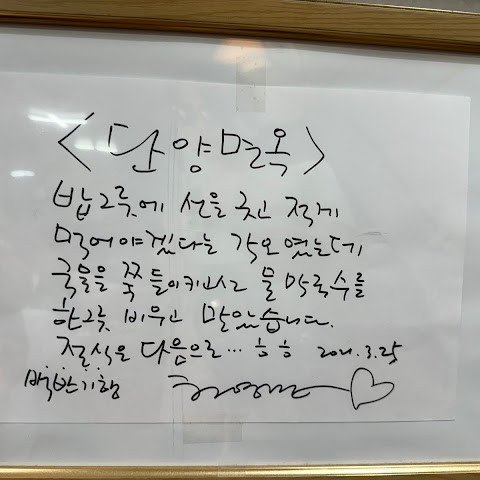 <단양면옥>
밥그릇에 선을 긋고 적게
먹어야겠다는 각오였는데
국물을 쭉 들이키고선 물막국수를
한그릇 비우고 말았습니다.
절식은 다음으로... ㅎㅎ 2021.3.25
백반기행